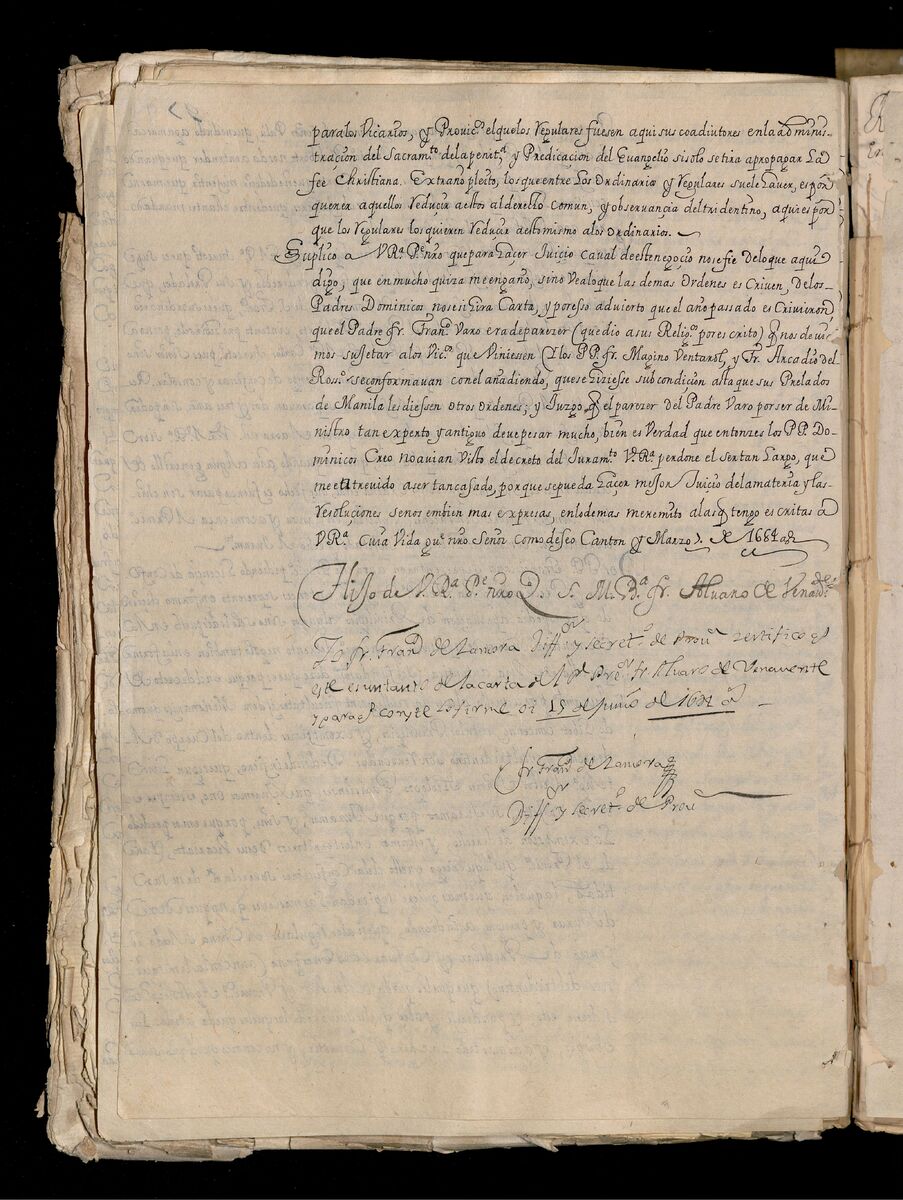 para los Vicarios, y Provic.s el que los Regulares fuesen aqui sus coadiutores en la adminis-
tracion del Sacram.to de la penit.a y Predicacion del Euangelio si solo se tira a propagar La
fee Christiana. Extraño pleito, los que entre Los Ordinarios y Regulares suele hauer, es por
querer aquellos reducir a estos al derecho comun, y observancia del tridentino, aqui es por
que los Regulares los quieren reducir a esto mismo a los Ordinarios.
Suplico a V.R.a P.e nro que para hacer Juicio caval de este negocio no se fie de lo que aqui
digo, que en mucho quiza me engaño, sino Vea lo que las demas Ordenes escriven, de los
Padres Dominicos no se si hira Carta, y por esso advierto que el año passado escrivieron
que el Padre fr. Fran.co Varo era de parezer (que dio a sus Relig.os por escrito) q nos devia-
mos sujetar a los Vic.os que Viniessen (Y los P.P. fr. Magino Ventarol, y Fr. Arcadio del
Ros.o se conformauan con el añadiendo, que se hiziesse sub condicion asta que sus Prelados
de Manila les diessen otros ordenes; y Juzgo q el parezer del Padre Varo por ser de Mi-
nistro tan experto y antiguo deve pesar mucho, bien es Verdad que entonzes los P.P. Do-
minicos Creo no avian Visto el decreto del Juram.to V.R.a perdone el ser tan Largo, que
me e atrevido a ser tan casado, porque se pueda hacer mejor Juicio de la materia y las
resoluciones se nos embien mas expresas, en lo demas me remito a las q tengo escritas a
V.R.a Cuia Vida g.e nro Señor como deseo Canton y Marzo de 1684 as
Hijo de V.R.a P.e nro Q. S. M. B.a fr. Alvaro de Venau.te
Yo fr. Fran.co de Zamora Diff.or y secret.o de Prou.a zertifico q
este es un tanto de la carta del P.e fr Alvaro de Venavente
y para q conste lo firme oi 15 de Junio de 1684 a.s
fr Fran.co de Zamora
Diff.or y secret.o de Prou.a